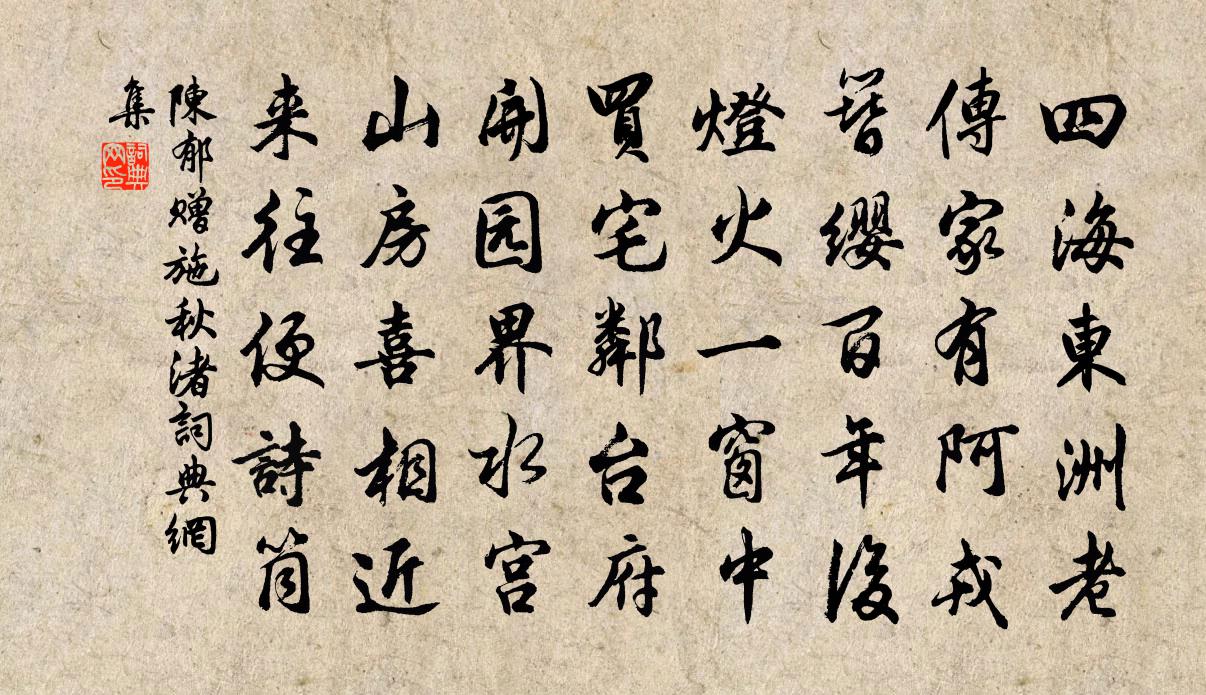 四海東洲老
傳家有阿戎
簪纓百年後
燈火一窗中
買宅鄰台府
開园界水宫
山房喜相近
来往便詩筒
陳郁赠施秋渚詞典網
集
詞典網印